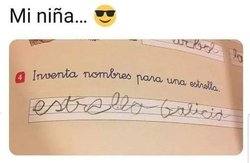 Mi niña... 😎
4 Inventa nombres para una estrella.
estrella galicia